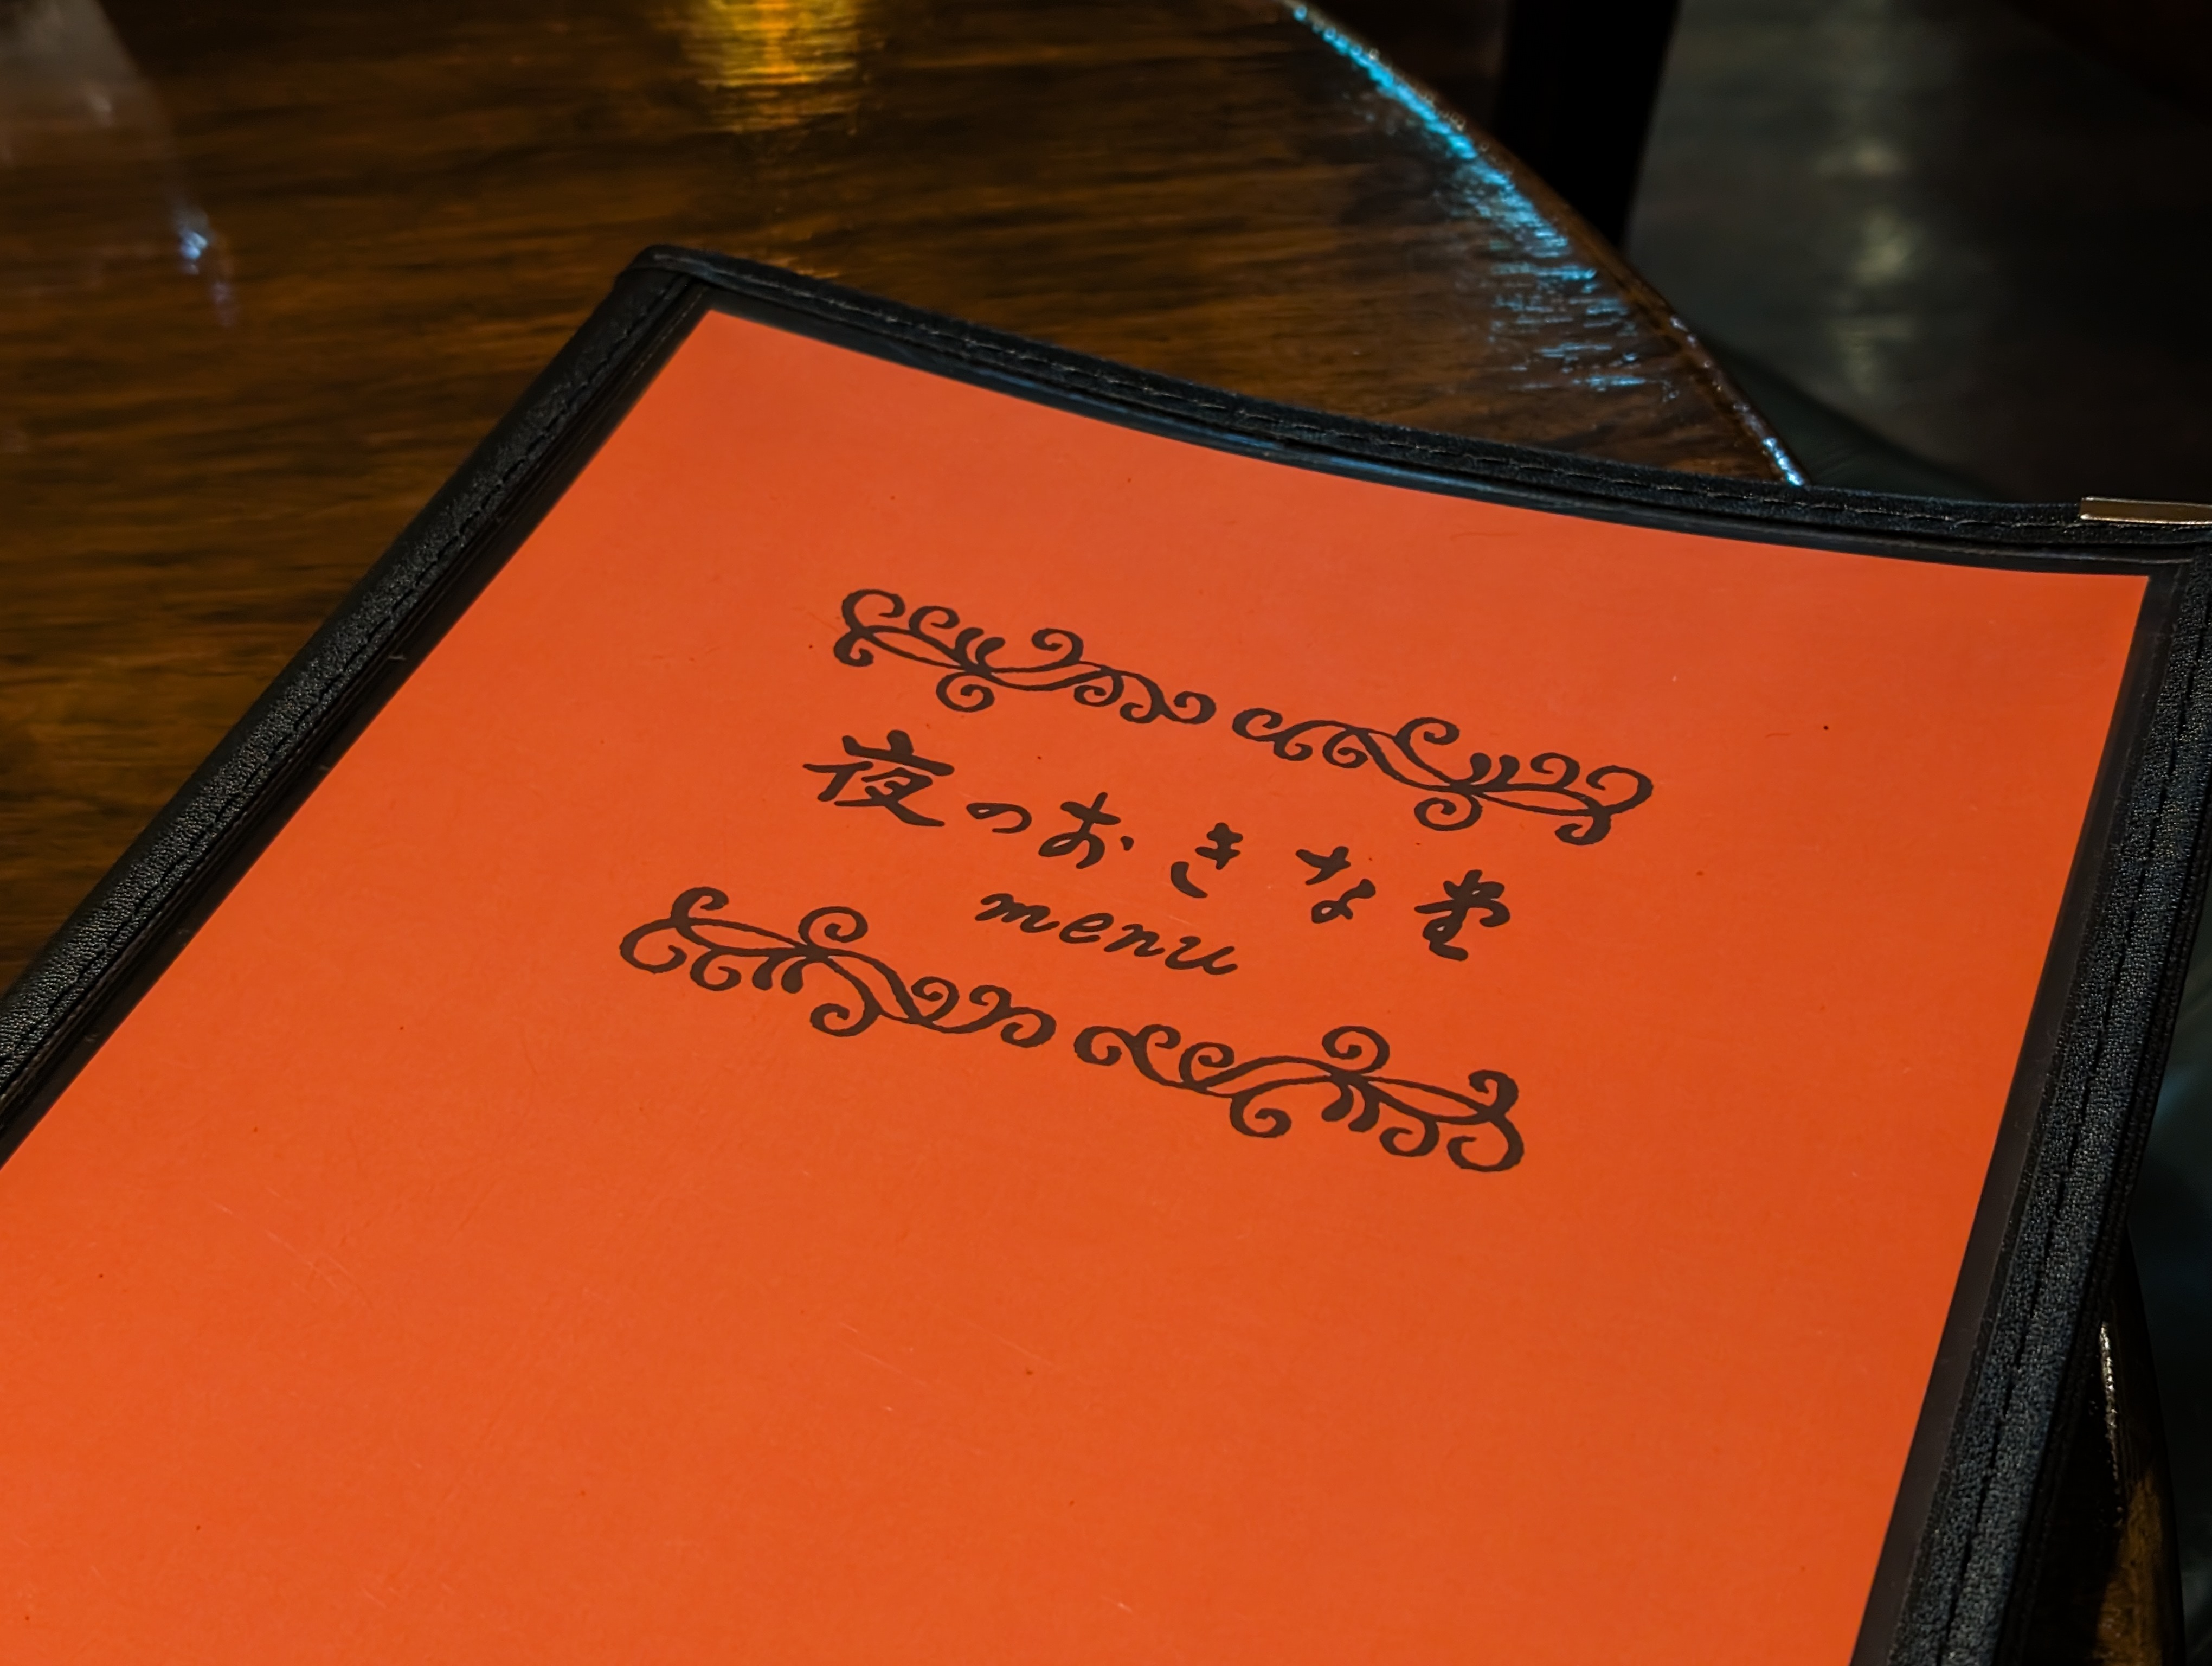 夜のおきな堂
menu